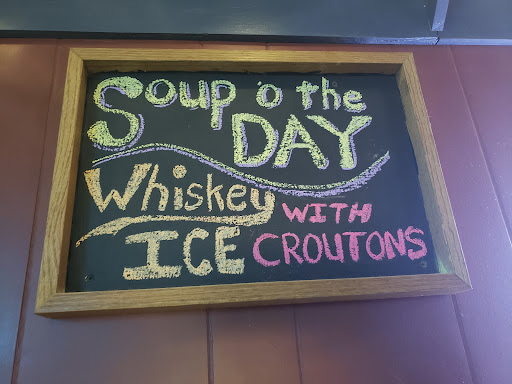 Soup o the
DAY
Whiskey
WITH
ICE CROUTONS